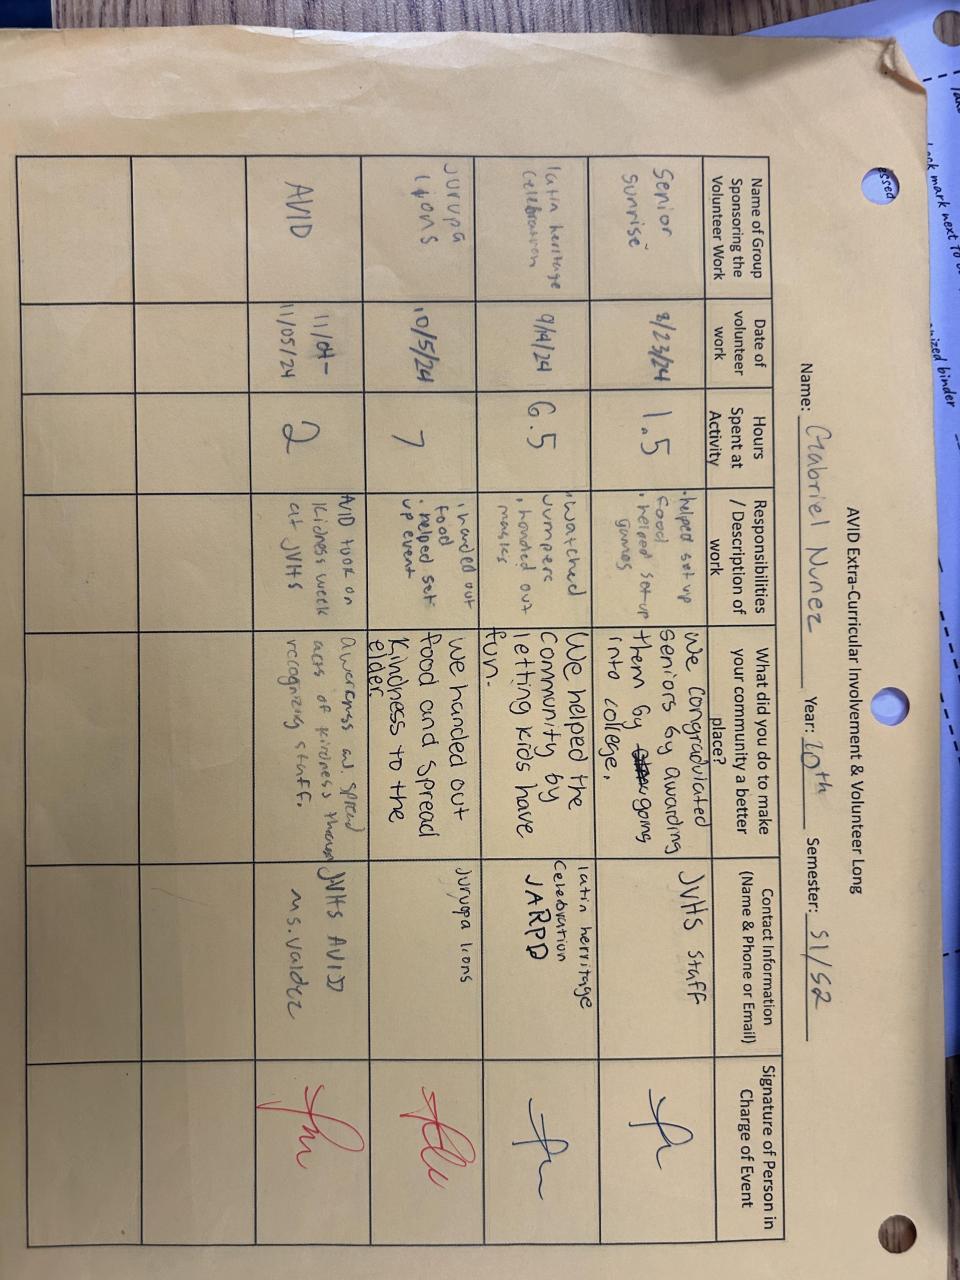 AVID Extra-Curricular Involvement & Volunteer Long
Name: Gabriel Nunez Year: 10th Semester: S1/S2
Name of Group
Sponsoring the
Volunteer Work
Date of
volunteer
work
Hours
Spent at
Activity
Responsibilities
/ Description of
work
What did you do to make
your community a better
place?
Contact Information
(Name & Phone or Email)
Signature of Person in
Charge of Event
Senior
sunrise
8/23/24
1.5
• helped set up
food
• helped set up
games
We congradulated
seniors by awarding
them by going
into college.
JVHS staff
latin heritage
Celebration
9/14/24
6.5
• watched
Jumpers
• handed out
masks
We helped the
community by
letting kids have
fun.
latin herritage
Celebration
JARPD
Jurupa
lions
10/5/24
7
• handed out
food
• helped set
up event
We handed out
food and spread
Kindness to the
elder.
Jurupa lions
AVID
11/04-
11/05/24
2
AVID took on
Kidness week
at JVHS
awareness and spread
acts of kindness through
recognizing staff.
JVHS AVID
Ms. Valdez
essed
mark next to
nized binder